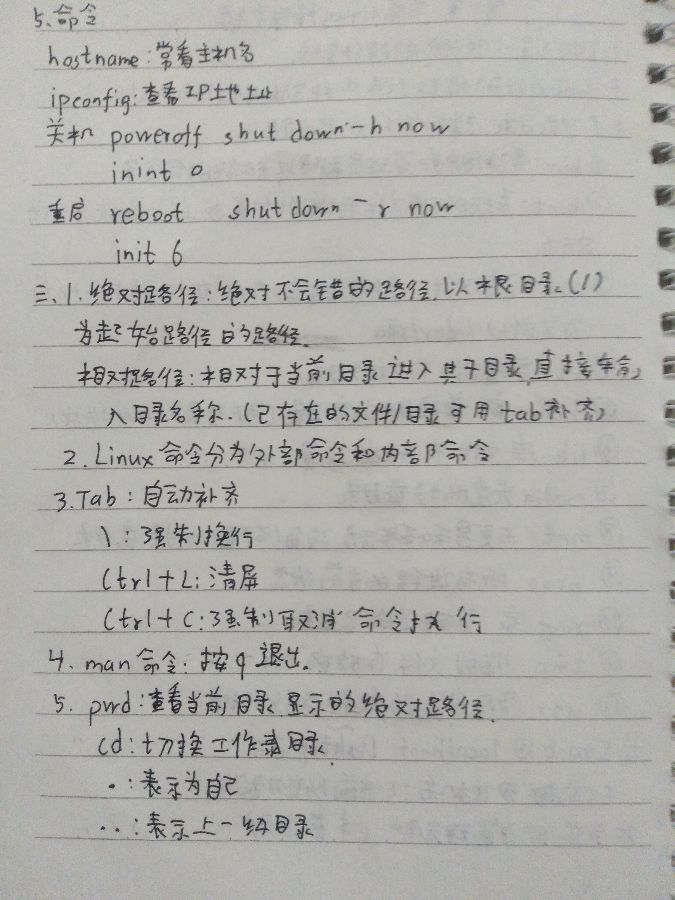 5、命令
hostname:常看主机名
ipconfig:查看IP地址
关机 poweroff shutdown -h now
inint 0
重启 reboot shutdown - r now
init 6
三、1.绝对路径:绝对不会错的路径,以根目录(/)
为起始路径的路径.
相对路径:相对于当前目录 进入其子目录,直接输
入目录名称.(已存在的文件/目录可用tab补齐)
2.Linux 命令分为外部命令和内部命令
3.Tab:自动补齐
\:强制换行
Ctrl+L:清屏
Ctrl+C:强制取消 命令执行
4、man 命令:按q退出。
5、pwd:查看当前目录 显示的绝对路径.
cd:切换工作目录
.:表示为自己
..:表示上一级目录